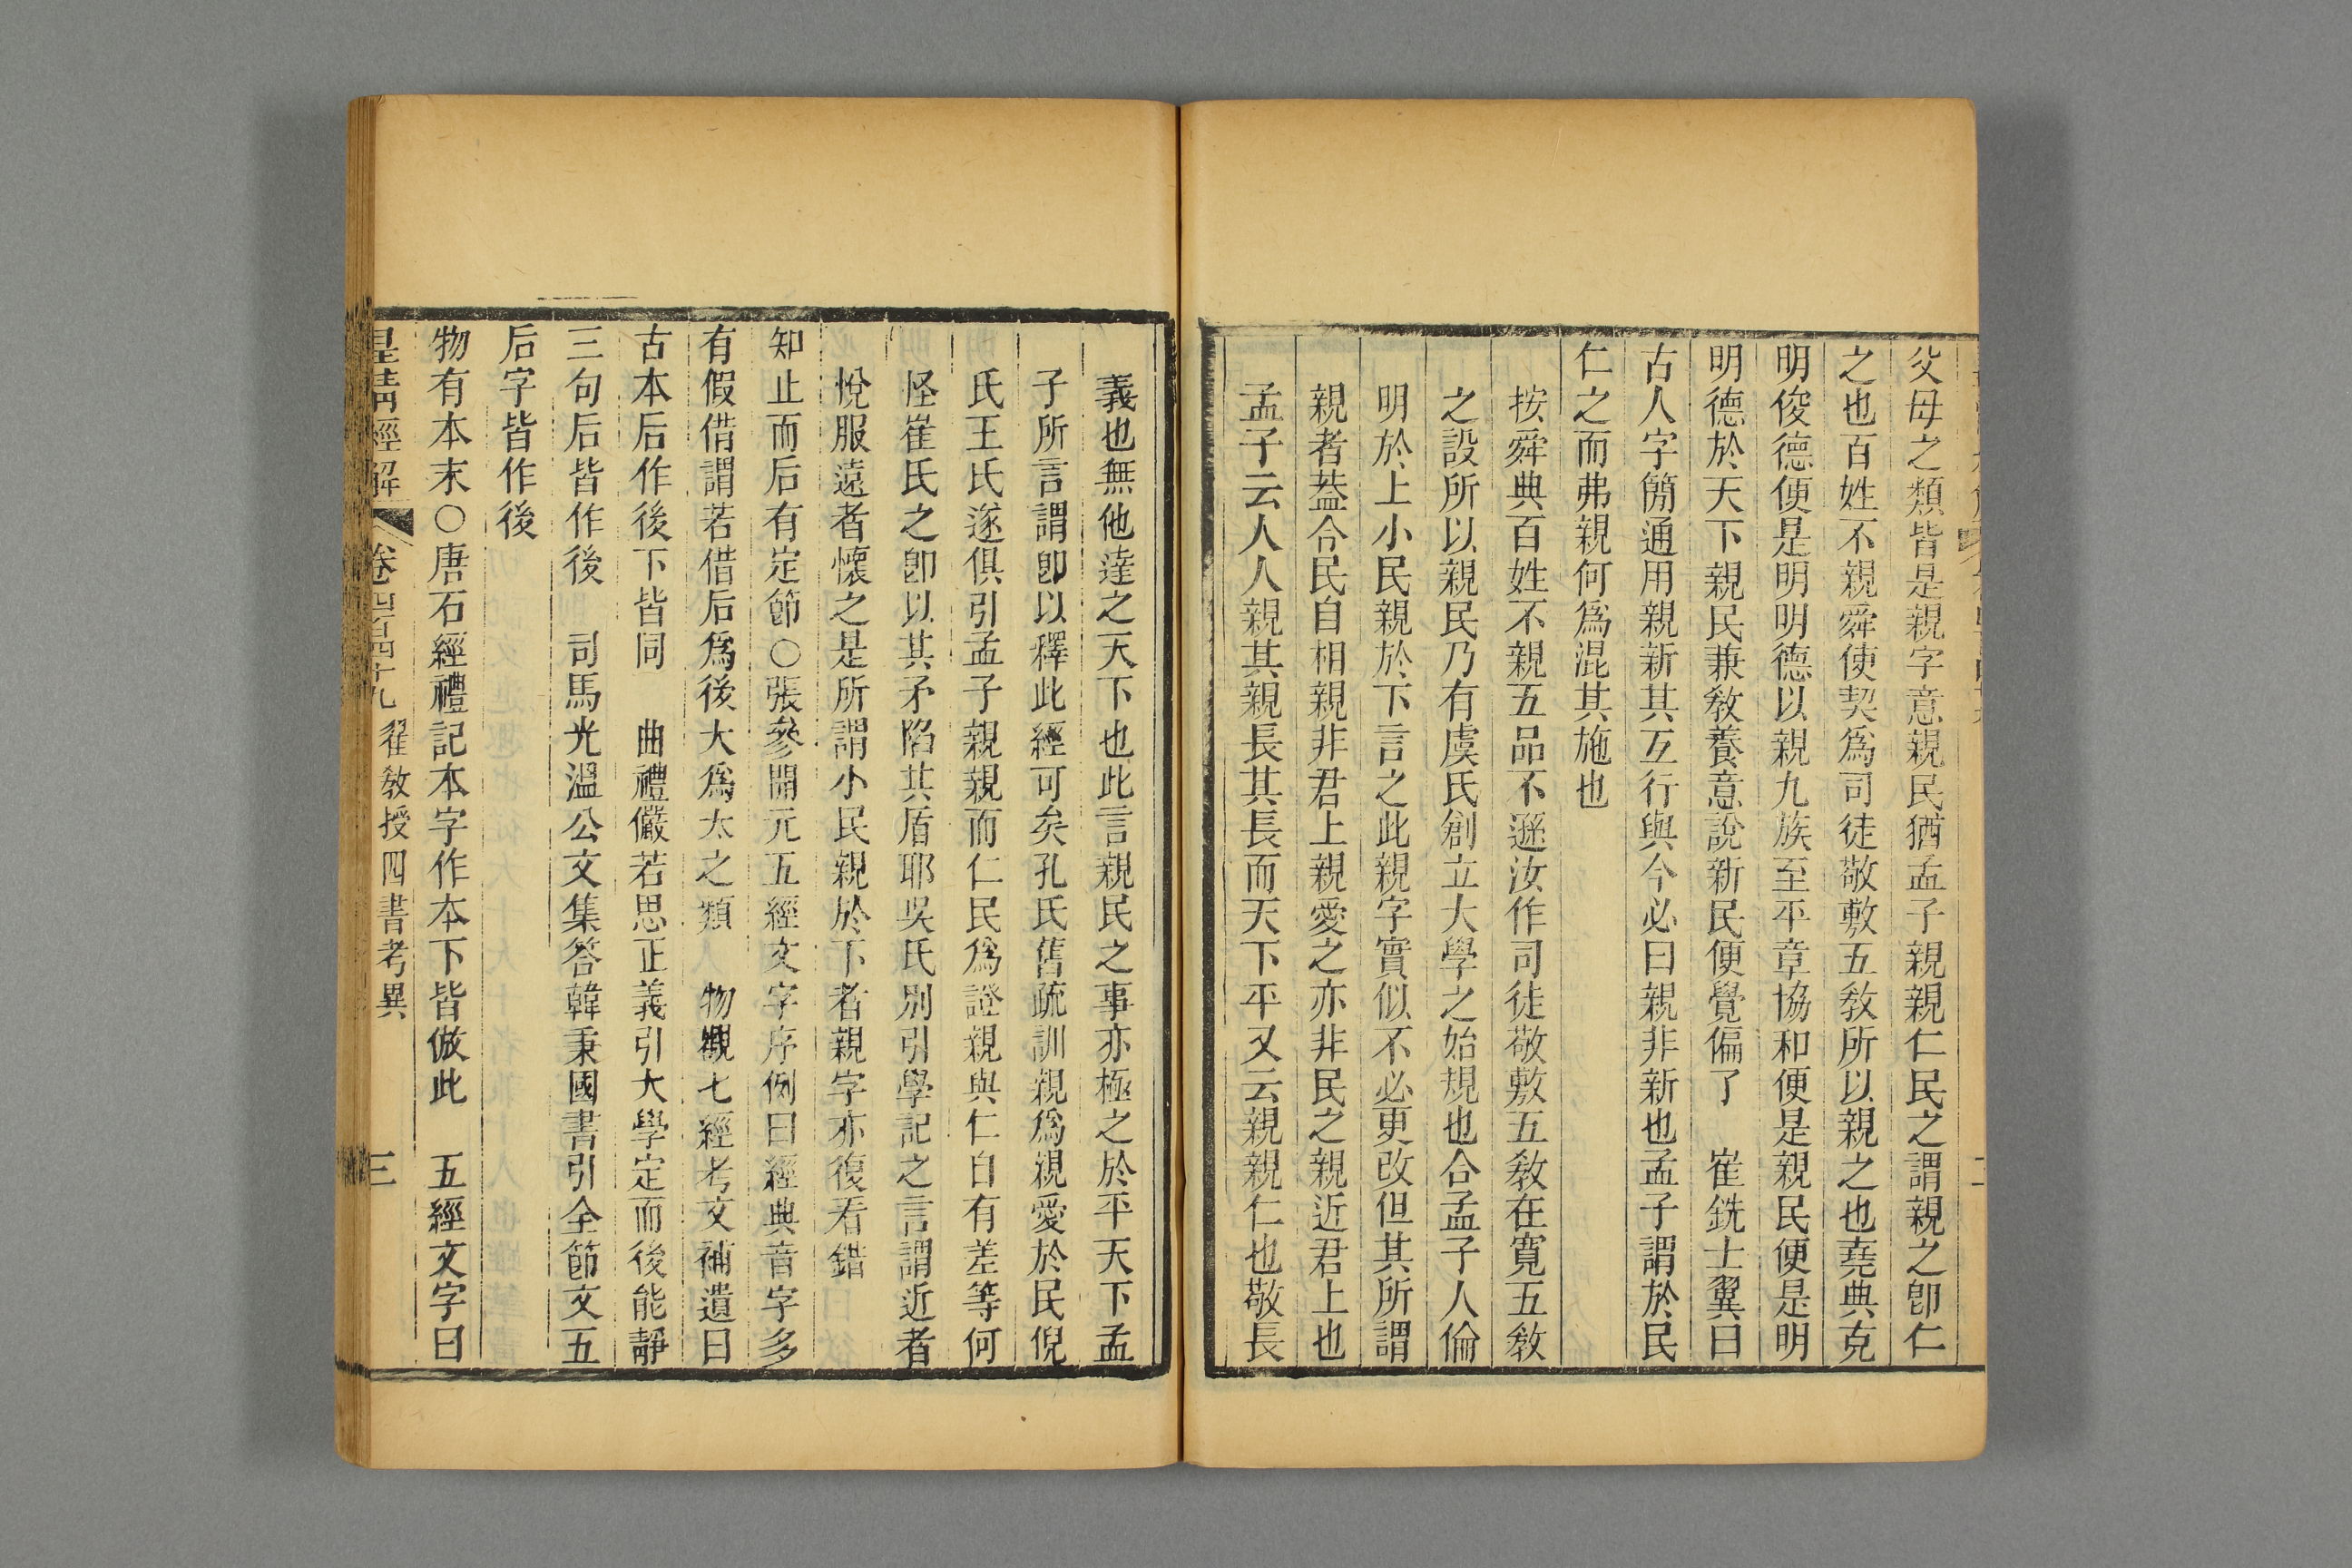 父母之類皆是親字意親民猶孟子親親仁民之謂親之卽仁
之也百姓不親舜使契爲司徒敬敷五敎所以親之也堯典克
明俊德便是明明德以親九族至平章協和便是親民便是明
明德於天下親民兼敎養意說新民便覺偏了　崔銑士翼曰
古人字簡通用親新其互行與今必曰親非新也孟子謂於民
仁之而弗親何爲混其施也
按舜典百姓不親五品不遜汝作司徒敬敷五敎在寬五敎
之設所以親民乃有虞氏創立大學之始規也合孟子人倫
明於上小民親於下言之此親字實似不必更改但其所謂
親者葢令民自相親非君上親愛之亦非民之親近君上也
孟子云人人親其親長其長而天下平又云親親仁也敬長
義也無他達之天下也此言親民之事亦極之於平天下孟
子所言謂卽以釋此經可矣孔氏舊疏訓親爲親愛於民倪
氏王氏遂俱引孟子親親而仁民爲證親與仁自有差等何
怪崔氏之卽以其矛陷其盾耶吳氏別引學記之言謂近者
悅服遠者懷之是所謂小民親於下者親字亦復看錯
知止而后有定節○張參開元五經文字序例曰經典音字多
有假借謂若借后爲後大爲太之類　物觀七經考文補遺曰
古本后作後下皆同　曲禮儼若思正義引大學定而後能靜
三句后皆作後　司馬光溫公文集答韓秉國書引全節文五
后字皆作後
物有本末○唐石經禮記本字作夲下皆倣此　五經文字曰
皇淸經解　卷四百四十九　翟敎授四書考異　三